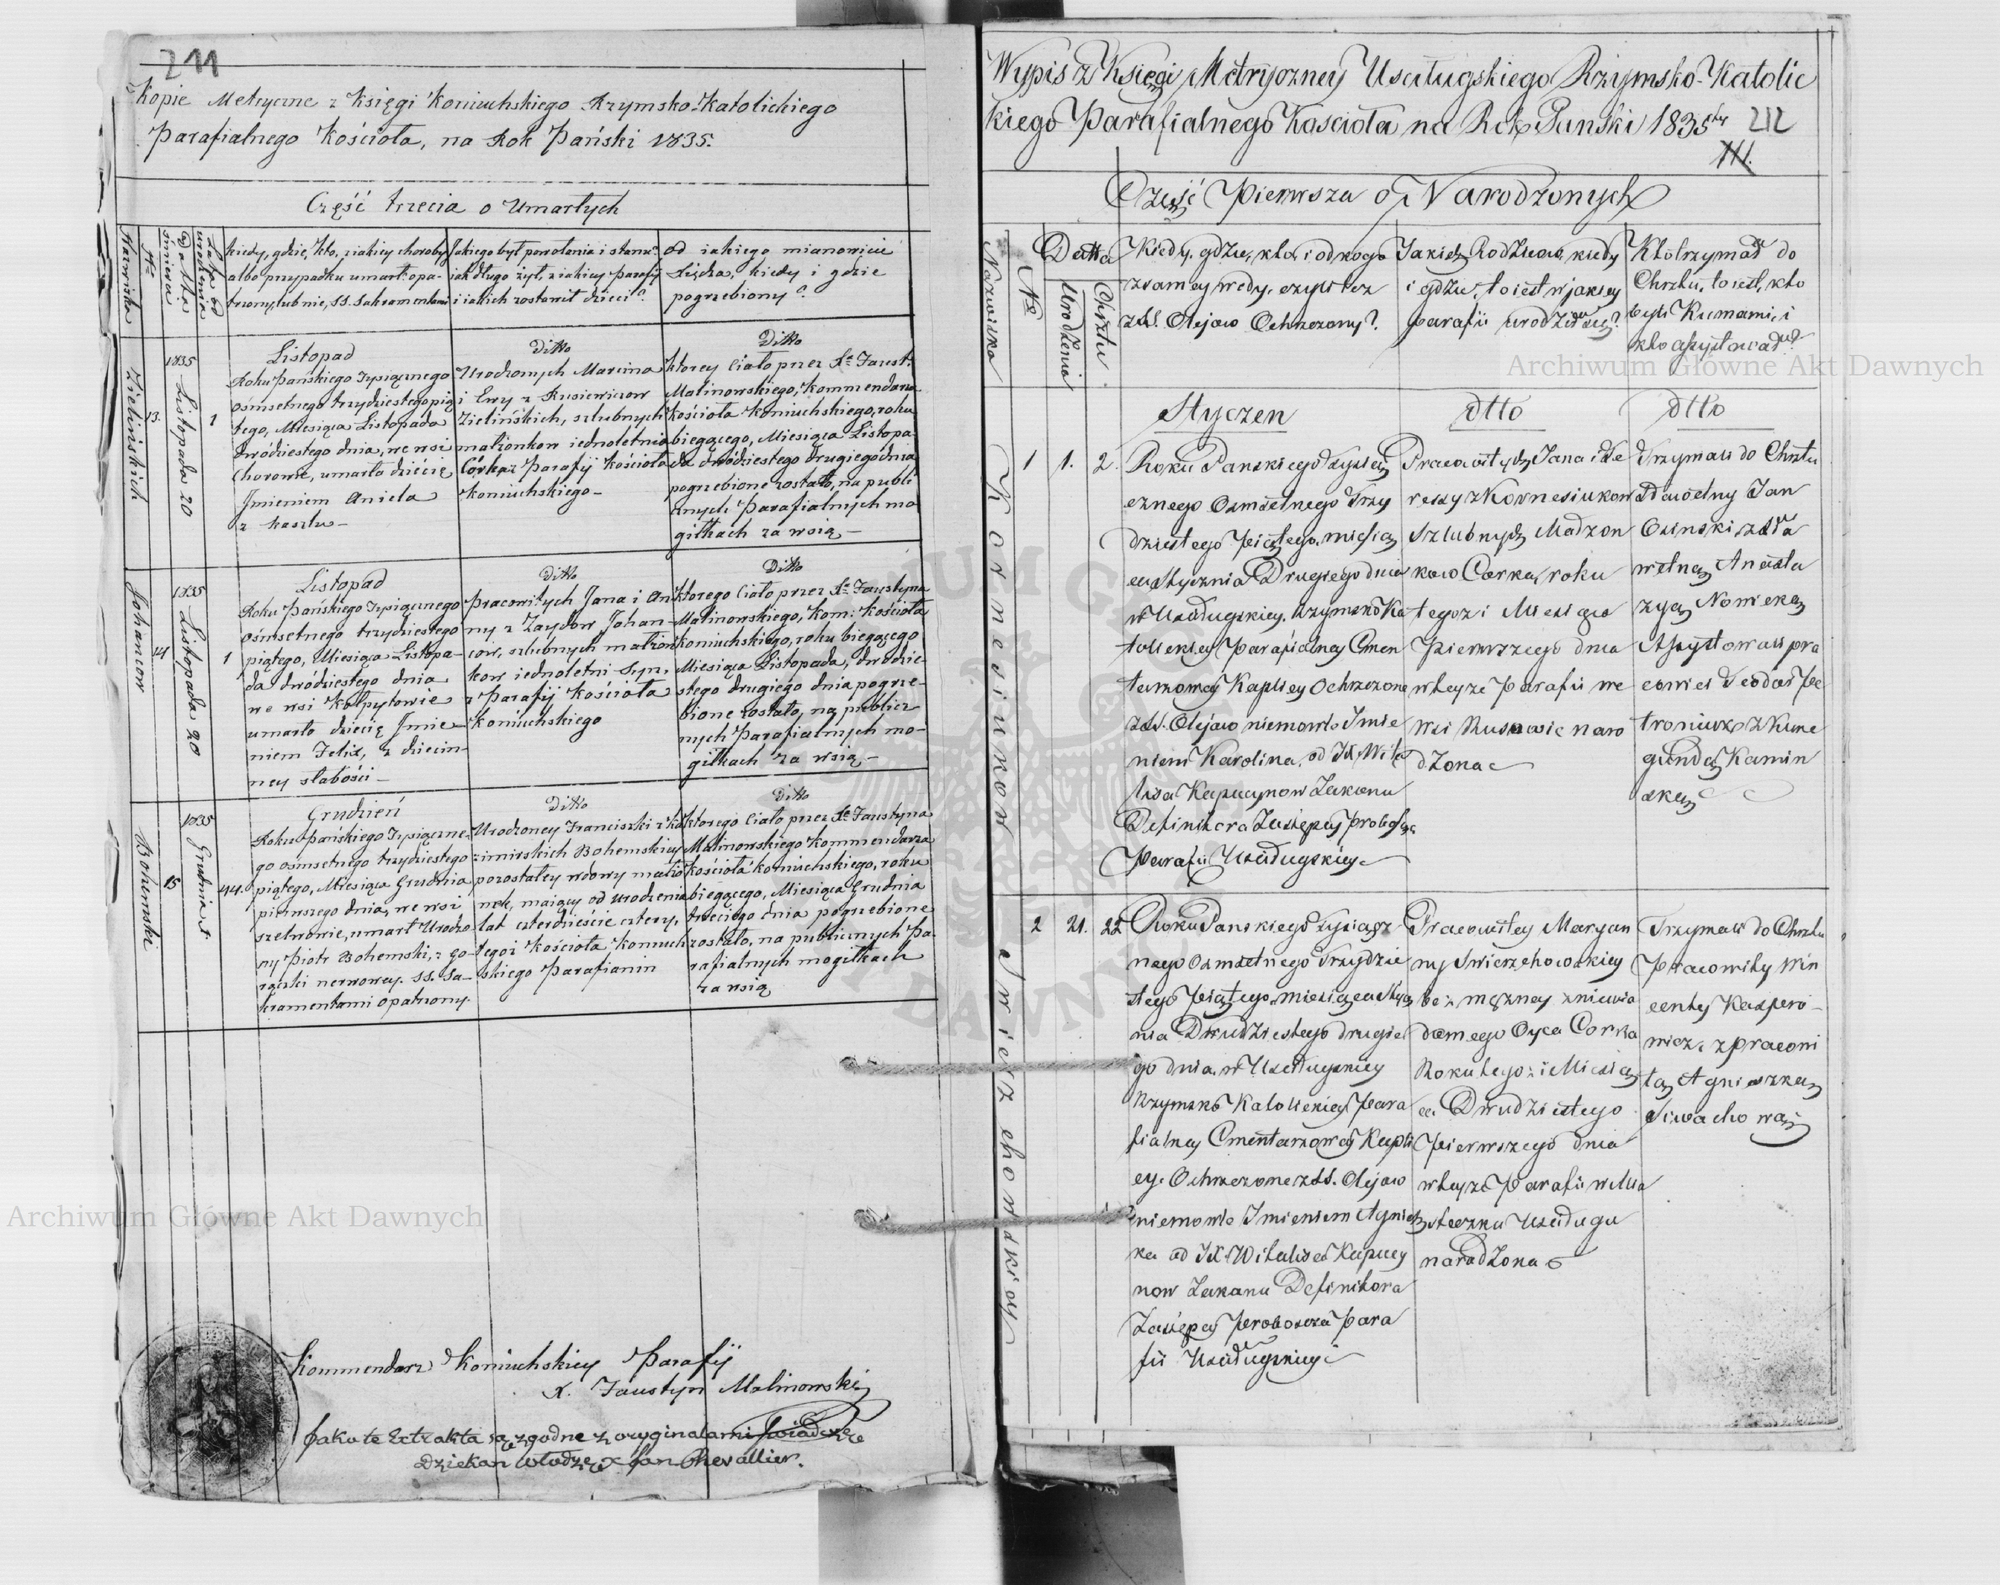 211
Kopie Metryczne z Księgi Koniuchskiego Rzymsko-Katolickiego
Parafialnego Kościoła, na Rok Pański 1835.
Część trzecia o Umarłych
Nazwiska
№
Data śmierci
kiedy, gdzie, kto, z iakiey choroby
albo przypadku umarł: opa-
trzony, lub nie, SS. Sakramentami
Jakiego był powołania i stanu:
jak długo żył, z iakiey parafij
i iakich zostawił dzieci?
od iakiego mianowicie
Xiędza, kiedy i gdzie
pogrzebiony?
Zielińskich
13.
1835 Listopada 20
1
Listopad
Roku Pańskiego Tysiącznego
ośmsetnego trzydziestego pią
tego, Miesiąca Listopada
dwódziestego dnia, we wsi
Chorowie, umarło dziecię
Jmieniem Aniela
z kaszlu—
Ditto
Urodzonych Marcina
i Ewy z Rusiewiczow
Zielińskich, szlubnych
małżonkow iednoletnia
Córka z Parafij Kościoła
Koniuchskiego—
Ditto
ktorey Ciało przez Xa Faust:
Malinowskiego, Kommendarza
Kościoła Koniuchskiego, roku
biegącego, Miesiąca Listopa-
da dwódziestego drugiego dnia
pogrzebione zostało, na publi
cznych Parafialnych mo
giłkach za wsią—
Johancow
14
1835 Listopada 20
1
Listopad
Roku Pańskiego Tysiącznego
ośmsetnego trzydziestego
piątego, Miesiąca Listopa-
da dwódziestego dnia
we wsi Kołpytowie
umarło dziecię Jmie-
niem Felix, z dziecin-
ney słabości—
Ditto
Pracowitych Jana i An
ny z Zaydow Johan-
cow, szlubnych małżon
kow iednoletni Syn:
z Parafij Kościoła
Koniuchskiego
Ditto
ktorego Ciało przez Xa Faustyna
Malinowskiego, Kom: Kościoła
Koniuchskiego, roku biegącego
Miesiąca Listopada, dwódzie-
stego drugiego dnia pogrze-
bione zostało, na publicz
nych Parafialnych mo-
giłkach za wsią—
Bohemski
15
1835 Grudnia 1.
44.
Grudzień
Roku Pańskiego Tysiączne-
go ośmsetnego trzydziestego
piątego, Miesiąca Grudnia
pierwszego dnia, we wsi
Szelwowie, umarł Urodzo
ny Piotr Bohemski, z go-
rączki nerwowey. SS. Sa-
kramentami opatrzony.
Ditto
Urodzoney Franciszki z Ka
zimirskich Bohemskiey
pozostałey wdowy małżo
nek, maiący od urodzenia
lat czterdzieście cztery,
tegoż Kościoła Koniuch
skiego Parafianin
Ditto
ktorego Ciało przez Xa Faustyna
Malinowskiego Kommendarza
Kościoła Koniuchskiego, roku
biegącego, Miesiąca Grudnia
trzeciego dnia pogrzebione
zostało, na publicznych Pa-
rafialnych mogiłkach
za wsią
Kommendarz Koniuchskiey Parafij
X. Faustyn Malinowski
Jako te Extrakta są zgodne z oryginalami świadczę
Dziekan Włodz: X Jan Chevallier.
Wypis z Księgi Metryczney Uściługskiego Rzymsko-Katolic
kiego Parafialnego Kościoła na Rok Panski 1835ty 212
Część Pierwsza o Narodzonych
Nazwiska
№
Datta
Urodzenia
Chrztu
Kiedy, gdzie, kto, i od kogo
z samey wody, czyli też
z SS. Olejow Ochrzczony?
Jakich Rodzicow, kiedy
i gdzie, to iest w jakiey
parafii urodził się?
Kto trzymał do
Chrztu, to iest, kto
byli Kumami, i
kto assystował
Styczen
dtto
dtto
Kornesiukow
1
1.
2.
Roku Panskiego Tysią
cznego Osmsetnego Trzy
dziestego Piątego, miesią
ca Stycznia Drugiego dnia
w Usciługskiey Rzymsko Ka
tolickiey Parafialney Cmen
tarzowey Kaplicy Ochrzczone
z SS. Olejow niemowle Jmie
niem Karolina, od JX Wita
lisa Kapucynow Zakonu
Definitora Zastępcy Probosza
Parafii Usciługskiey
Pracowitych Jana i Te
ressy z Kornesiukow
Szlubnych Małzon
kow Corka, roku
tegoz i Miesiąca
Pierwszego dnia
w teyze Parafii we
Wsi Rusnowie naro
dzona
Trzymali do Chrztu
Szlachetny Jan
Osinski, z Szla
wetną Anasta
zyą Nowicką
Assystowali pra
cowici Teodor Pe
troniuk z Kune
gundą Kamin
ską
Swierzchowskiey
2
21.
22
Roku Panskiego Tysiącz
nego Osmsetnego Trzydzie
stego Piątego, miesiąca Stycz
nia Dwudziestego drugie
go dnia, w Usciługskiey
Rzymsko Katolickiey Para
fialney Cmentarzowey Kapli
cy, Ochrzczone z SS. Olejow
niemowle Jmieniem Agniesz
ka od JX Witalisa Kapucy
now Zakonu Definitora
Zastępcy Proboszcza Para
fii Usciługskiey
Pracowitey Maryan
ny Swierzchowskiey
bez męzney z niewia
domego Oyca Corka
Roku tegoz i Miesią
ca Dwudziestego
Pierwszego dnia
w teyze Parafii w Mia
steczku Usciługu
narodzona
Trzymali do Chrztu
Pracowity Win
centy Kaspero-
wicz, z pracowi
tą Agnieszką
Siwachową
Archiwum Główne Akt Dawnych
Archiwum Główne Akt Dawnych